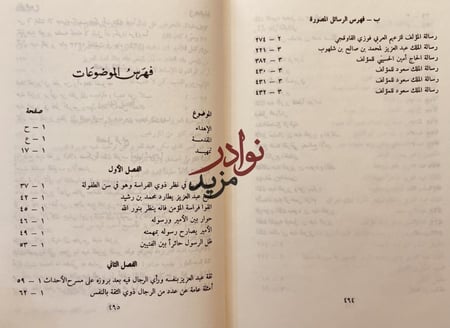 ب – فهرس الرسائل المصورة
رسالة المؤلف الزعيم العربي فوزي القاوقجي ٢ – ٢٧٤
رسالة الملك عبد العزيز لمحمد بن صالح بن شلهوب ٣ – ٢٢١
رسالة الحاج أمين الحسيني للمؤلف ٣ – ٣٨٢
رسالة الملك سعود للمؤلف ٣ – ٤٣٠
رسالة الملك سعود للمؤلف ٣ – ٤٣١
رسالة الملك سعود للمؤلف ٣ – ٤٣٢
٤٩٤
فهرس الموضوعات
الموضوع صفحة
الإهداء ١ – ح
المقدمة ١ – ع
تمهيد ١ – ١٧
الفصل الأول
في نظر ذوي الفراسة وهو في سن الطفولة ١ – ٣٧
عبد العزيز يطارده محمد بن رشيد ١ – ٤٢
اتقوا فراسة المؤمن فانه ينظر بنور الله ١ – ٤٥
حوار بين الأمير ورسوله ١ – ٤٧
الأمير يصارح رسوله بمهمته ١ – ٤٩
ظل الرسول حائراً بين الفتيين ١ – ٥٣
الفصل الثاني
ثقة عبد العزيز بنفسه ورأي الرجال فيه بعد بروزه على مسرح الأحداث ١ – ٥٩
أمثلة عامة عن عدد من الرجال ذوي الثقة بالنفس ١ – ٦٢
٤٩٥
نوادر
مزيد